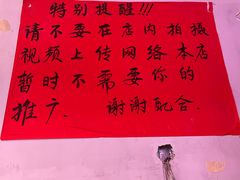 特别提醒!!!
请不要在店内拍摄
视频上传网络本店
暂时不需要你的
推广. 谢谢配合.